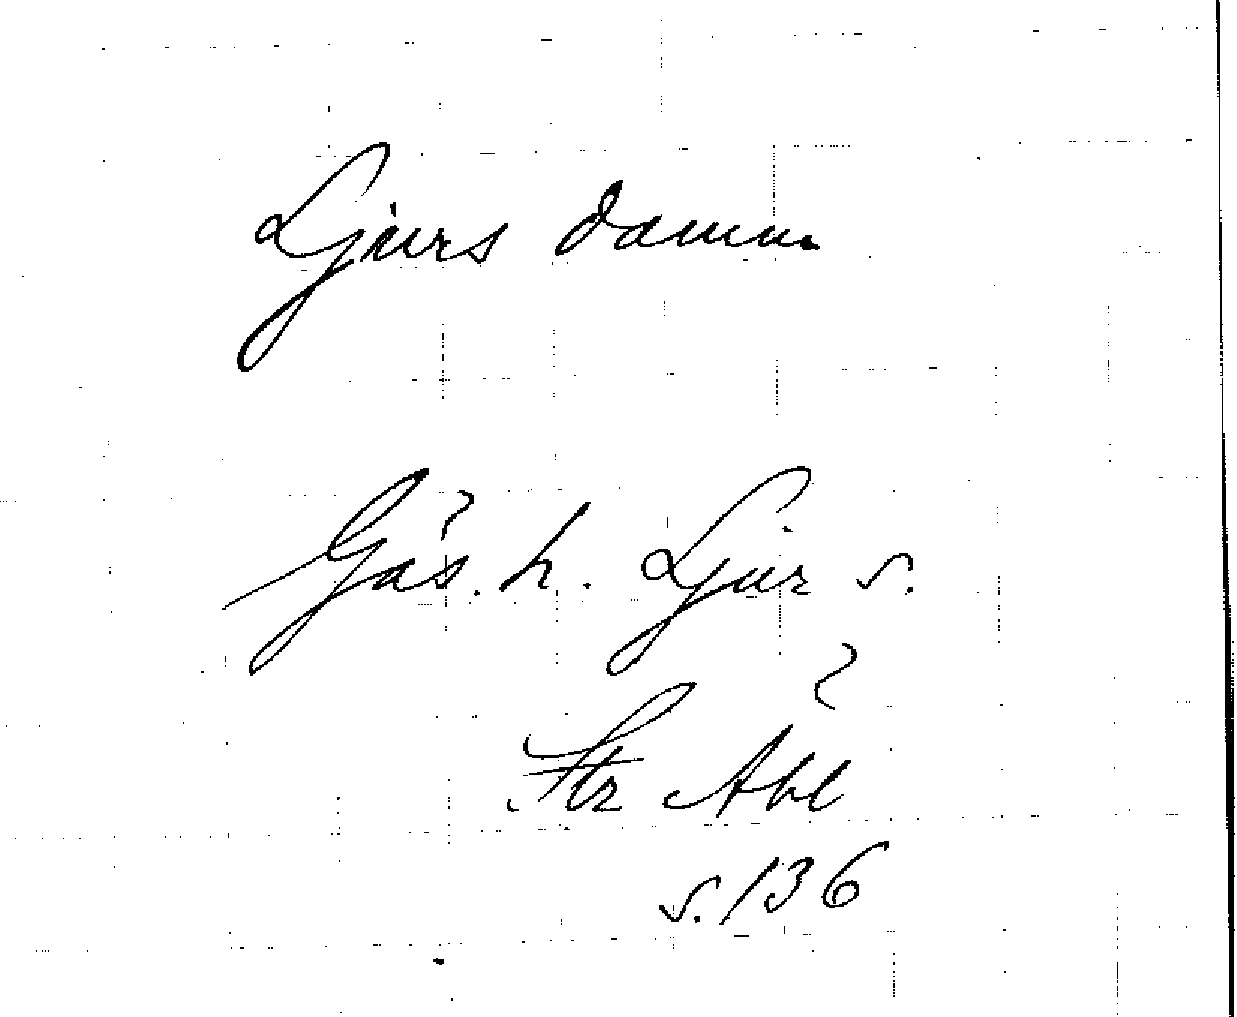 Ljurs damm
Gås. h. Ljur s.
Str Abl
s. 136